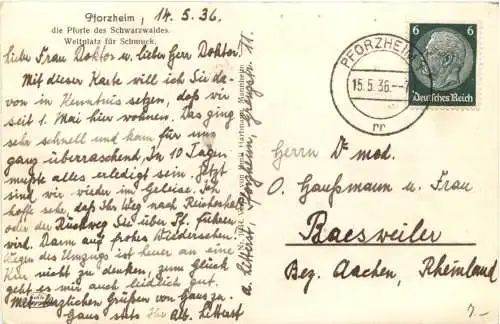 Pforzheim, 14.5.36.
die Pforte des Schwarzwaldes.
Weltplatz für Schmuck.
Liebe Frau Doktor u. lieber Herr Doktor!
Mit dieser Karte will ich Sie da-
von in Kenntnis setzen, daß wir
seit 1. Mai hier wohnen. Das ging
sehr schnell und kam für uns
ganz überraschend. In 10 Tagen
mußte alles erledigt sein. Jetzt
sind wir wieder im Geleise. Ich
hoffe sehr, daß Ihr Weg nach
oder der Rückweg Sie über Pf. führen
wird. Dann auf frohes Wiedersehen.
Wegen des Umzugs ist heuer an eine
nicht zu denken, zum Glück
geht es mir auch leidlich gut.
Mit herzlichen Grüßen von Haus zu
Haus stets Ihr Alb. Letterst
a. Letterst, Pforzheim, 11.
PFORZHEIM
15.5.36.
6
6
Deutsches Reich
Herrn Dr med.
O. Haußmann u. Frau
Baesweiler
Bez. Aachen, Rheinland
7.-